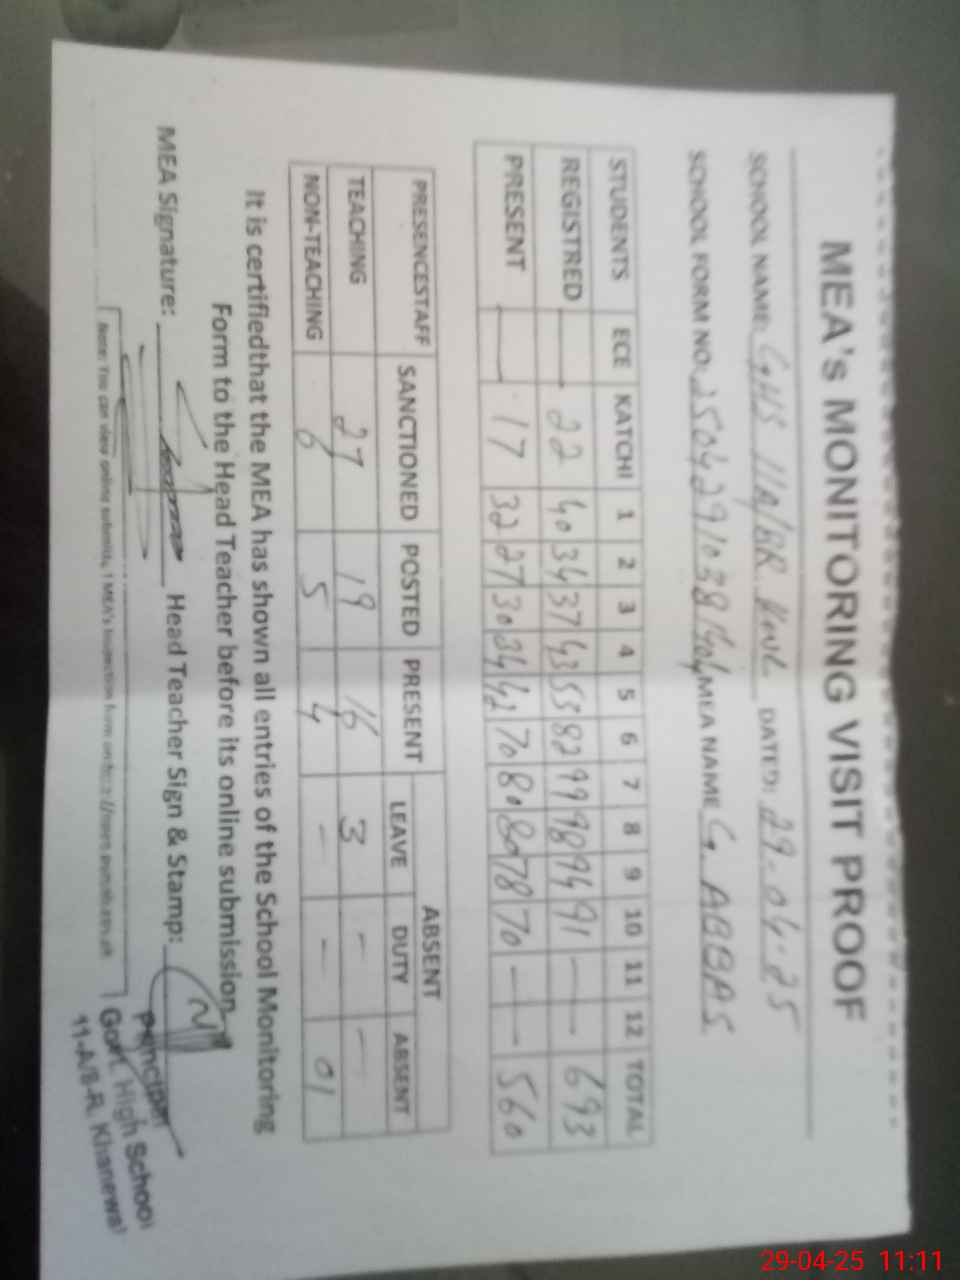 MEA's MONITORING VISIT PROOF
SCHOOL NAME: GHS 11A/8R. DATED: 29-04-25
SCHOOL FORM NO: MEA NAME G. ABBAS
STUDENTS ECE KATCHI 1 2 3 4 5 6 7 8 9 10 11 12 TOTAL
REGISTRED — 22 40 34 37 43 55 82 99 98 94 91 — — 693
PRESENT — 17 32 27 30 34 42 70 80 80 78 70 — — 560
PRESENCESTAFF SANCTIONED POSTED PRESENT ABSENT
LEAVE DUTY ABSENT
TEACHING 27 19 16 3 – –
NON-TEACHING 6 5 4 – – 01
It is certifiedthat the MEA has shown all entries of the School Monitoring
Form to the Head Teacher before its online submission.
MEA Signature: Head Teacher Sign & Stamp:
Principal
Govt. High School
11-A/8-R, Khanewal
Note: You can view online submitted MEA's
29-04-25 11:11